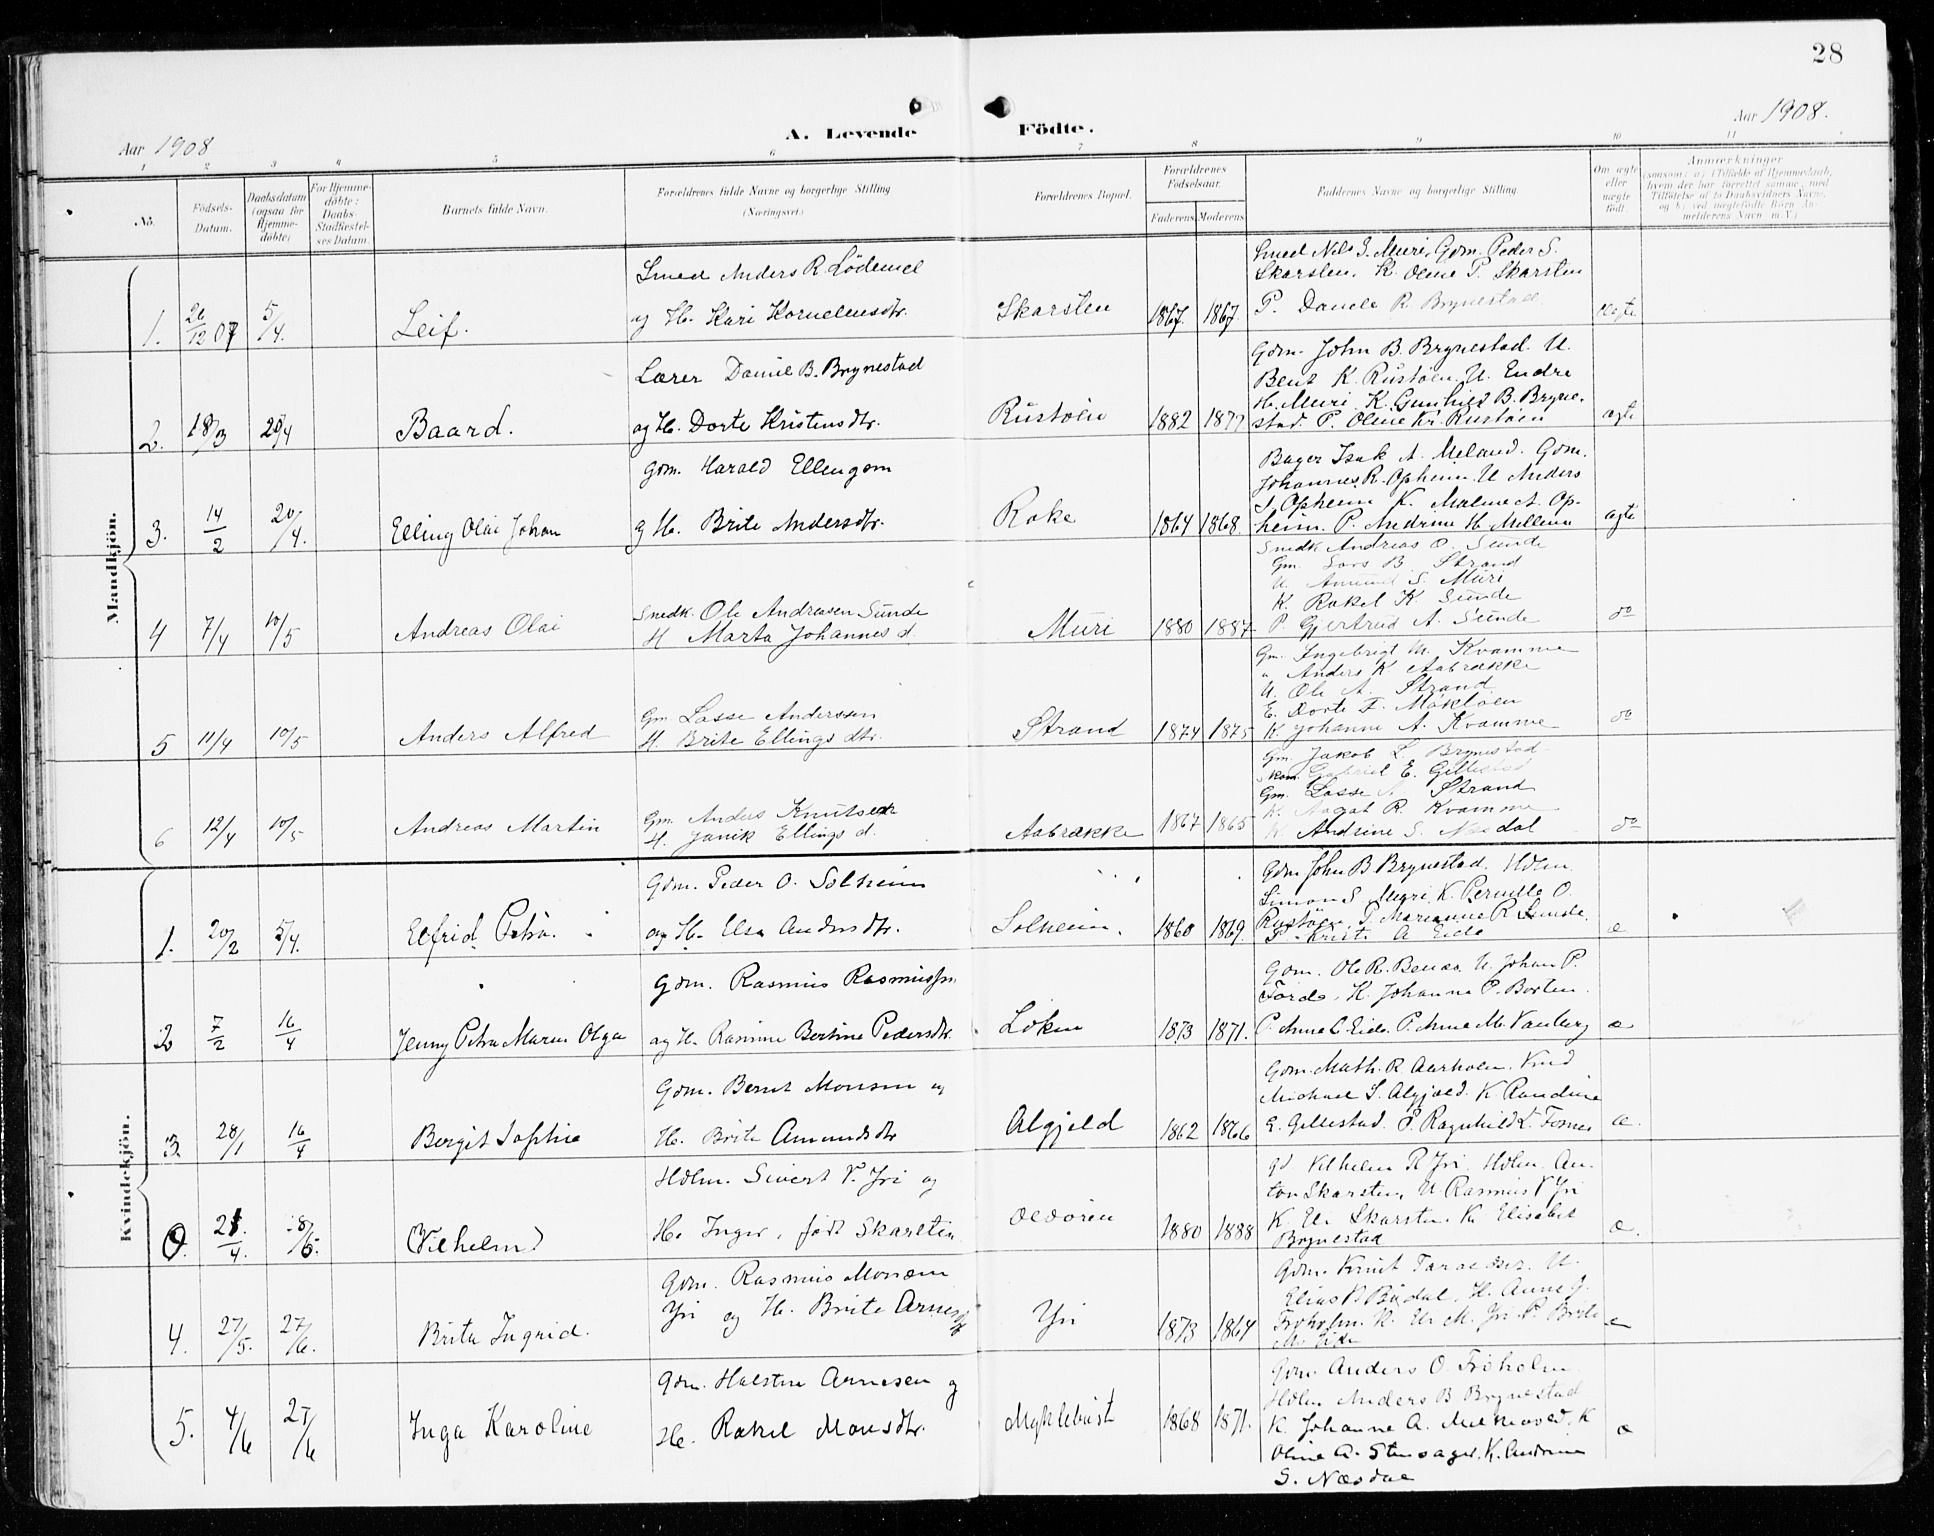 28
Aar 1908
A. Levende Födte.
Aar 1908.
1 2 3 4 5 6 7 8 9 10 11
No.
Födsels-Datum.
Daabsdatum (ogsaa for Hjemme-döbte)
For Hjemme-döbte: Daabs-Stadfæstel-ses Datum.
Barnets fulde Navn.
Forældrenes fulde Navne og borgerlige Stilling
(Næringsvei)
Forældrenes Bopæl.
Forældrenes Födselsaar.
Faderens Moderens
Faddernes Navne og borgerlige Stilling.
Om ægte eller uægte födt.
Anmærkninger
Mandkjön.
Smed Anders R. Lödemel
Smed Nils S. Muri, Gdm. Peder S.
Skarsten. K. Oline P. Skarsten
1. 26/12 07 5/4. Leif. og H. Kari Korneliusdtr. Skarsten 1867. 1867. P. Danele R. Brynestad. ægte
Lærer Daniel B. Brynestad
Gdm. John B. Brynestad. U.
Bent K. Rustöen, U. Endre
H. Muri K. Gunhild B. Bryne-
2. 18/3 20/4 Baard. og H. Dorte Kristensdtr. Rustöen 1882 1877 stad. P. Oline Kr. Rustöen ægte
Gdm. Harald Ellingsen
Bager Isak A. Meland. Gdm.
Johannes R. Opheim. U. Anders
J. Opheim K. Malene A. Op-
3. 14/2 20/4. Elling Olai Johan g H. Brite Andersdtr. Roke 1864 1868. heim. P. Andrine H. Mellem ægte
Snedk Andreas O. Sunde
Gm. Lars B. Strand
U. Amund S. Muri
Snedk. Ole Andreasen Sunde
K. Rakel K Sunde
4 7/4 10/5 Andreas Olai H. Marta Johannes d. Muri 1880 1887 P. Gjertrud A. Sunde do
Gm. Ingebrigt M. Kvamme
" Anders K Aabrække
U. Ole A. Strand
Gm. Lasse Anderssen
E. Dorte F. Mökløen
5 11/4 10/5 Anders Alfred H. Brite Ellings dtr. Strand 1874 1875 K Johanne A. Kvamme do
Gm. Jakob L. Brynestad
Gabriel E. Gillestad
Gm. Lasse A Strand
Gm. Anders Knutsen
K. Magat R. Kvamme
6 12/4 10/5 Andreas Martin H. Janik Ellings d. Aabrække 1867 1865 K Andrine S. Næsdal do
Kvindekjön.
Gdm. Peder O. Solheim
Gdm John B Brynestad. Hdm.
Simon S. Muri, K. Pernille O.
Rustöen, P. Marianne R Sunde
1. 20/2 5/4. Elfrid Petra. og H. Else Andersdtr. Solheim. 1860 1869. P. Kristi A Eide æ
Gdm. Rasmus Rasmussen
Gdm. Ole R. Benas. U. Johan P.
Förde, K. Johanne P. Borten.
2 7/2 16/4 Jenny Petra Maren Olga og H. Rasmine Bertine Pedersdtr. Löken 1873 1871. P. Anne C. Eide. P. Anne M. Vanberg æ
Gdm. Bernt Monsen og
Gdm. Math. R. Aarholen. Knud
Michael S. Algjeld. K. Randine
3. 28/1 16/4 Bergit Sophie H. Brite Amundsdtr Algjeld 1862 1866 E. Gillestad. P. Ragnhild L. Fornes æ.
Hdlm. Sivert V. Yri og
Gd. Vilhelm R Yri. Hdlm. An-
ton Skarsten, U. Rasmus V Yri
0. 21/4. 28/5. (Vilhelm) H. Inger, född Skarsten Oldören 1880 1888 K. Eli Skarsten. K. Elisabet
Brynestad æ.
Gdm. Rasmus Monsen
Gdm. Knut Taraldsen. U.
Elias P. Bödal. H. Anne J.
Yri og H. Brite Arnesdtr
4. 27/5. 27/6. Brita Ingrid. Yri 1873 1864 Fröholm. K. Eli M. Yri. P. Brite
M. Eide æ
Gdm. Halsten Arnesen g
Gdm. Anders O. Fröholm
Hdlm Anders B Brynestad
5. 4/6 27/6 Inga Karoline H. Rakel Monsdtr. Myklebust 1868 1871. K. Johanne A. Melheved. K
Oline A. Stensager. K. Andrine
S. Næsdal æ